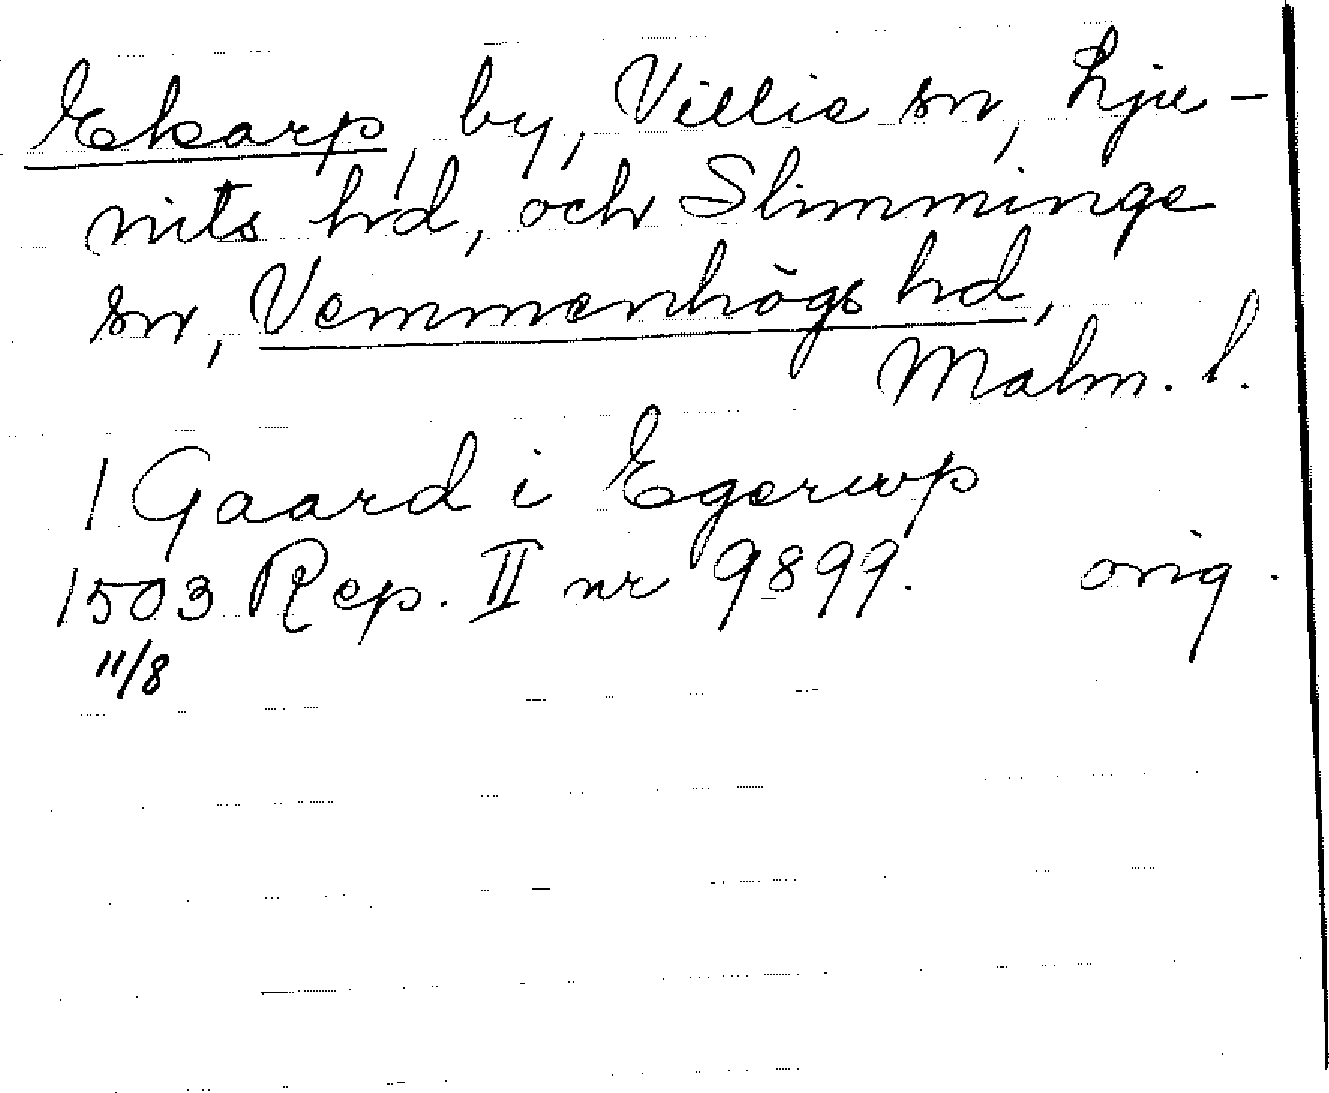 Ekarp, by, Villie sn, Lju-
nits hd, och Slimminge
sn, Vemmenhögs hd,
Malm. l.
1 Gaard i Egerwp
1503 Rep. II nr 9899. orig.
11/8